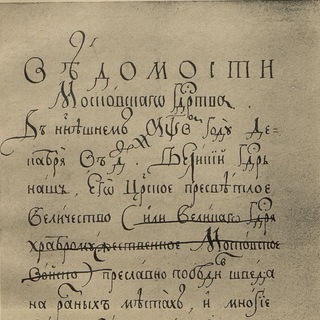 Вѣдомости
Московскаго Гдртва.
Въ нн҃ѣшнемъ год꙯ꙋ де-
кабря въ д҃. Великїй Гдрь
нашъ. Егѡ Црское пресвѣтлое
Величество (или Великагѡ Гдря
храбромужественное Московское
Войско) преславно побѣдi швѣда
на разныхъ мѣстахъ, и многїе